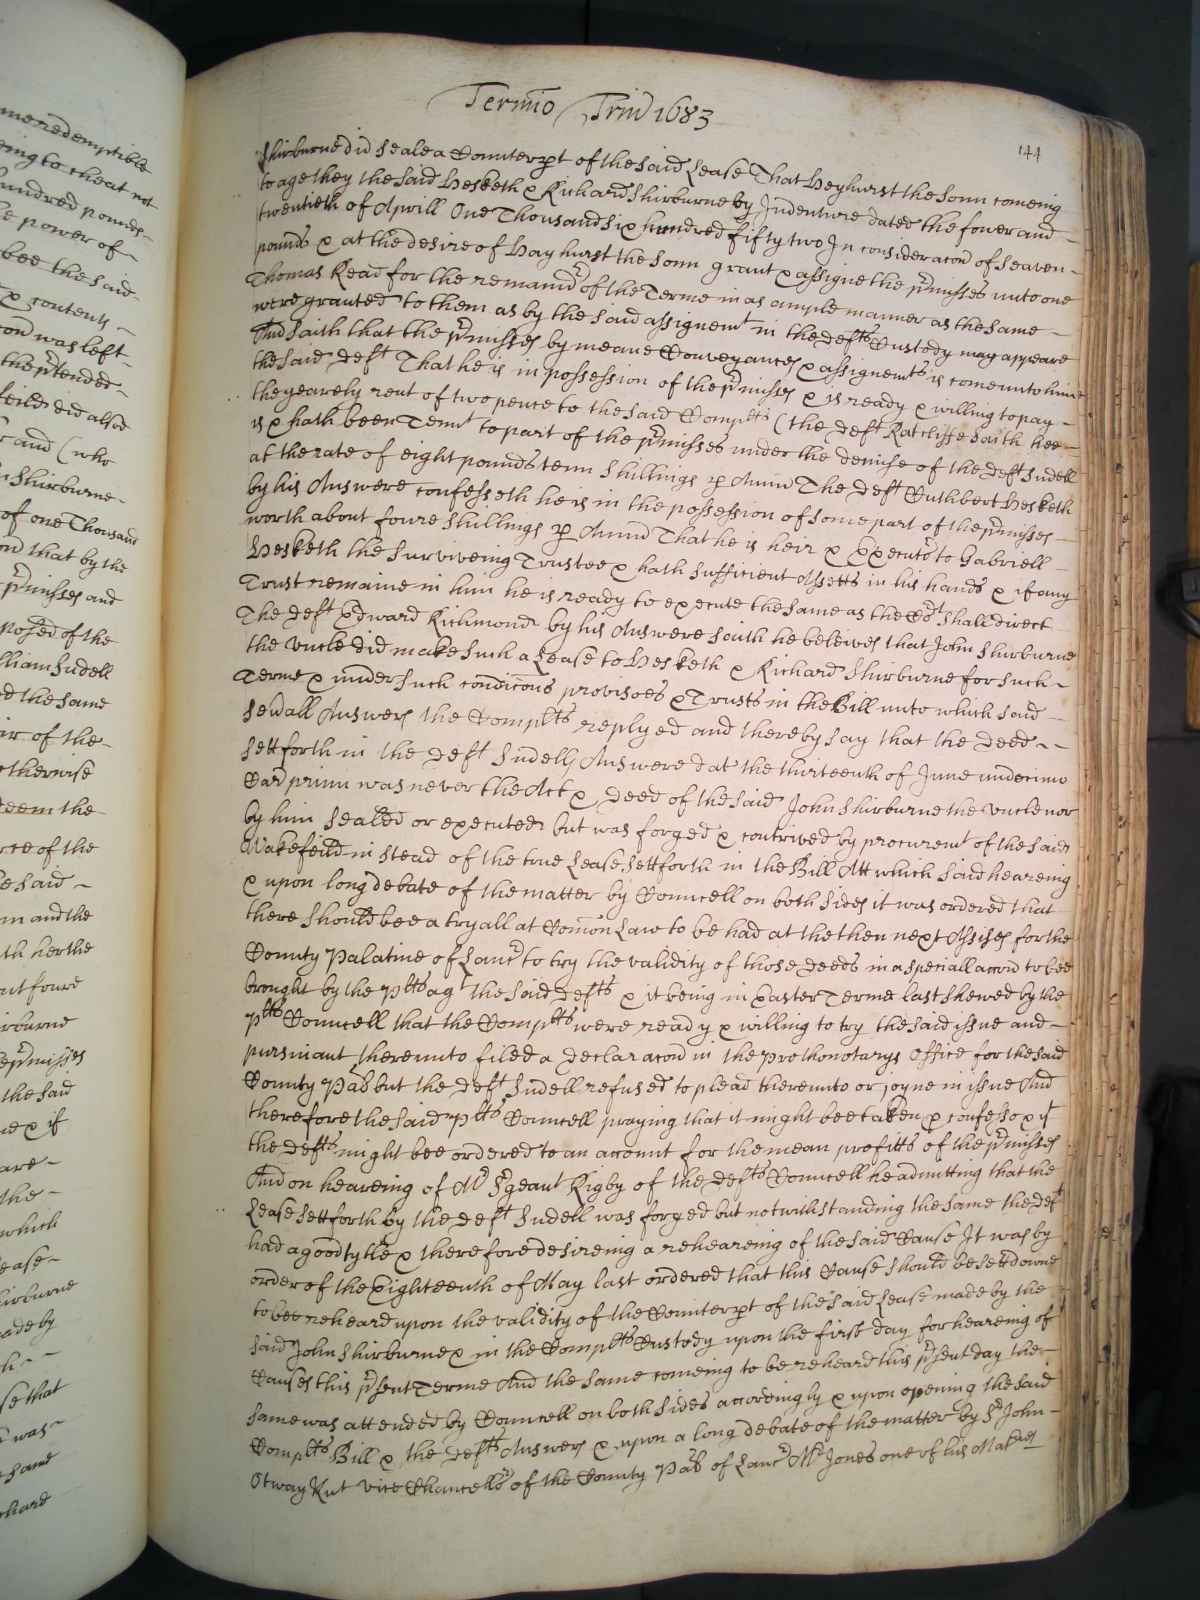 Termio Trin 1683
144
Shirburne did Seale a Counterpt of the said Lease That Heyhurst the Sonn comeing
to age they the said Hesketh & Richard Shirburne by Indenture dated the fower and
twentieth of Aprill One Thousand six hundred fifty two In consideracon of Seaven
pounds & at the desire of Hayhurst the Sonn grant & assigne the prmisses unto one
Thomas Read for the remaindr of the Terme in as ample manner as the same
were granted to them as by the said assignemt in the defts Custody may appeare
And saith that the prmisses by meane Conveyances & assignemts is come unto him
the said deft That he is in possession of the prmisses & is ready & willing to pay
the yearely rent of two pence to the said Complts (the deft Ratcliffe saith hee
is & hath been Tennt to part of the prmisses under the demise of the deft Sudell
at the rate of eight pounds tenn Shillings p Annu The deft Cuthbert Hesketh
by his Answere confesseth he is in the possession of some part of the prmisses
worth about foure Shillings p Annu That he is heir & Executor to Gabriell
Hesketh the Surviveing Trustee & hath sufficient Assetts in his hands & if any
Trust remaine in him he is ready to execute the same as the Cort shall direct
The deft Edward Richmond by his Answere saith he beleives that John Shirburne
the Uncle did make such a Lease to Hesketh & Richard Shirburne for such
Terme & under such condicons provisoes & Trusts in the Bill unto which said
sevall Answers the Complts replyed and thereby say that the deed
sett forth in the deft Sudells Answere dat the thirteenth of June undecimo
Car primi was never the Act & deed of the said John Shirburne the Uncle nor
by him sealed or executed but was forged & contrived by procuremt of the said
Wakefeild in stead of the true Lease sett forth in the Bill Att which said heareing
& upon long debate of the matter by Councell on both sides it was ordered that
there should bee a tryall at Comon Law to be had at the then next Assises for the
County Palatine of Lancr to try the validity of those deeds in a speciall accon to bee
brought by the Plts agt the said defts & it being in Easter Terme last shewed by the
Plts Councell that the Complts were ready & willing to try the said issue and
pursuant thereunto filed a declaracon in the Prothonotarys Office for the said
County Pal but the deft Sudell refused to plead thereunto or joyne in issue And
therefore the said Plts Councell praying that it might bee taken p confesso & yt
the defts might bee ordered to an account for the mean profitts of the prmisses
And on heareing of Mr Srgeant Rigby of the defts Councell he admitting that the
Lease sett forth by the deft Sudell was forged but notwithstanding the same the deft
had a good tytle & therefore desireing a reheareing of the said Cause It was by
order of the Eighteenth of May last ordered that this Cause should be sett downe
to bee reheard upon the validity of the Counterpt of the said Lease made by the
said John Shirburne & in the Complts Custody upon the first day for heareing of
Causes this prsent Terme And the same comeing to be reheard this prsent day the
same was attended by Councell on both sides accordingly & upon opening the said
Complts Bill & the defts Answers & upon a long debate of the matter by Sr John
Otway Knt vice Chancellr of the County Pal of Lancr Mr Jones one of his Maties